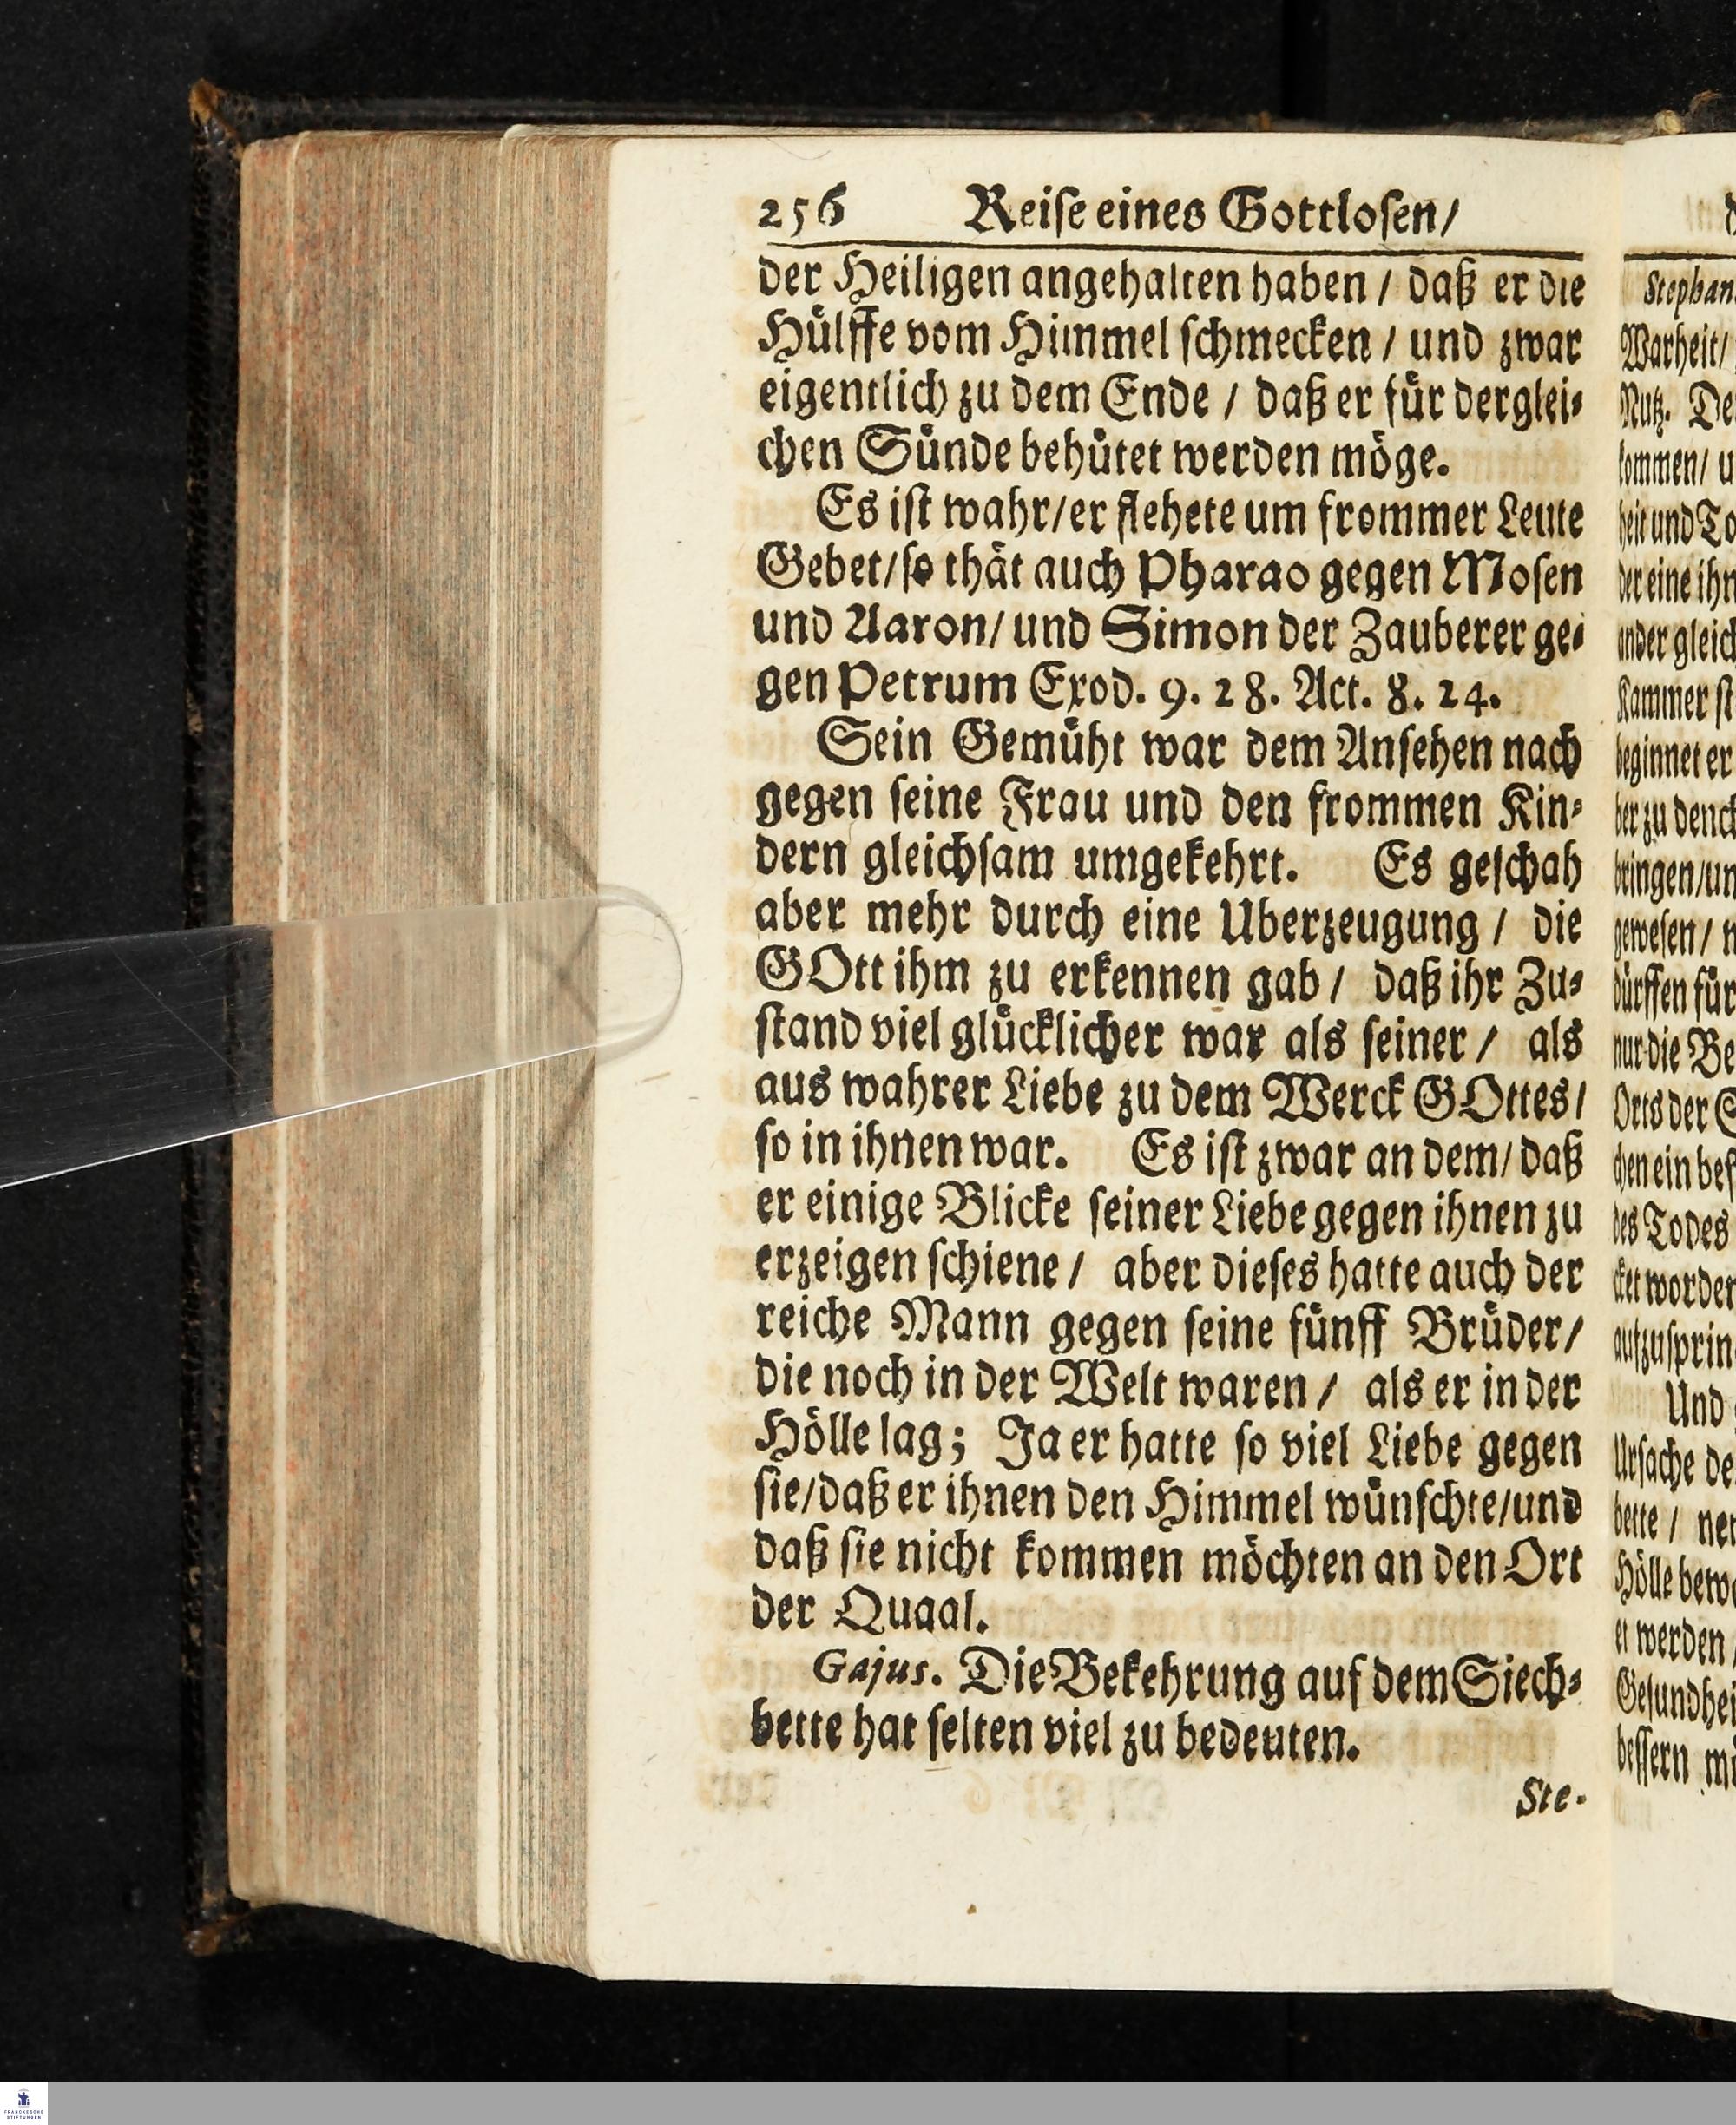 256 Reiſe eines Gottloſen/
der Heiligen angehalten haben / daß er die
Hülffe vom Himmel ſchmecken / und zwar
eigentlich zu dem Ende / daß er für derglei⸗
chen Sünde behütet werden möge.
Es iſt wahr/er flehete um frommer Leute
Gebet/ſo thät auch Pharao gegen Moſen
und Aaron/ und Simon der Zauberer ge⸗
gen Petrum Exod. 9. 28. Act. 8. 24.
Sein Gemüht war dem Anſehen nach
gegen ſeine Frau und den frommen Kin⸗
dern gleichſam umgekehrt. Es geſchah
aber mehr durch eine Uberzeugung / die
GOtt ihm zu erkennen gab / daß ihr Zu⸗
ſtand viel glücklicher war als ſeiner / als
aus wahrer Liebe zu dem Werck GOttes/
ſo in ihnen war. Es iſt zwar an dem/ daß
er einige Blicke ſeiner Liebe gegen ihnen zu
erzeigen ſchiene / aber dieſes hatte auch der
reiche Mann gegen ſeine fünff Brüder/
die noch in der Welt waren / als er in der
Hölle lag; Ja er hatte ſo viel Liebe gegen
ſie/daß er ihnen den Himmel wünſchte/und
daß ſie nicht kommen möchten an den Ort
der Quaal.
Gajus. Die Bekehrung auf dem Siech⸗
bette hat ſelten viel zu bedeuten.
Ste-
Stephan
Warheit/
Nutz. De
kommen/ u
heit und To
der eine ihn
ander gleich
Kammer ſt
beginnet er
ber zu denck
bringen/un
geweſen / n
dürffen für
nur die Be
Orts der S
chen ein beſ
des Todes
cket worden
aufzuſprin
Und
Urſache de
bette / nem
Hölle bewe
et werden
Geſundhei
beſſern mö
FRANCKESCHE
STIFTUNGEN